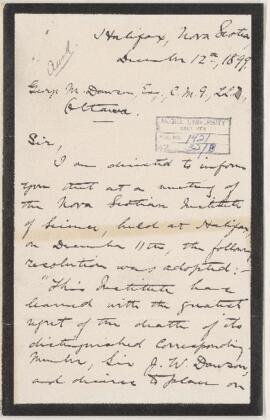 Halifax, Nova Scotia,
December 12th, 1899
George M. Dawson, Esq., C.M.G., LL.D.,
Ottawa.
McGILL UNIVERSITY
ACC. NO. 1451
REF. 3518
Sir,
I am directed to inform
you that at a meeting of
the Nova Scotian Institute
of Science, held at Halifax
on December 11th, the following
resolution was adopted:-
"This Institute have
learned with the greatest
regret of the death of its
distinguished Corresponding
Member, Sir J. W. Dawson,
and desires to place on